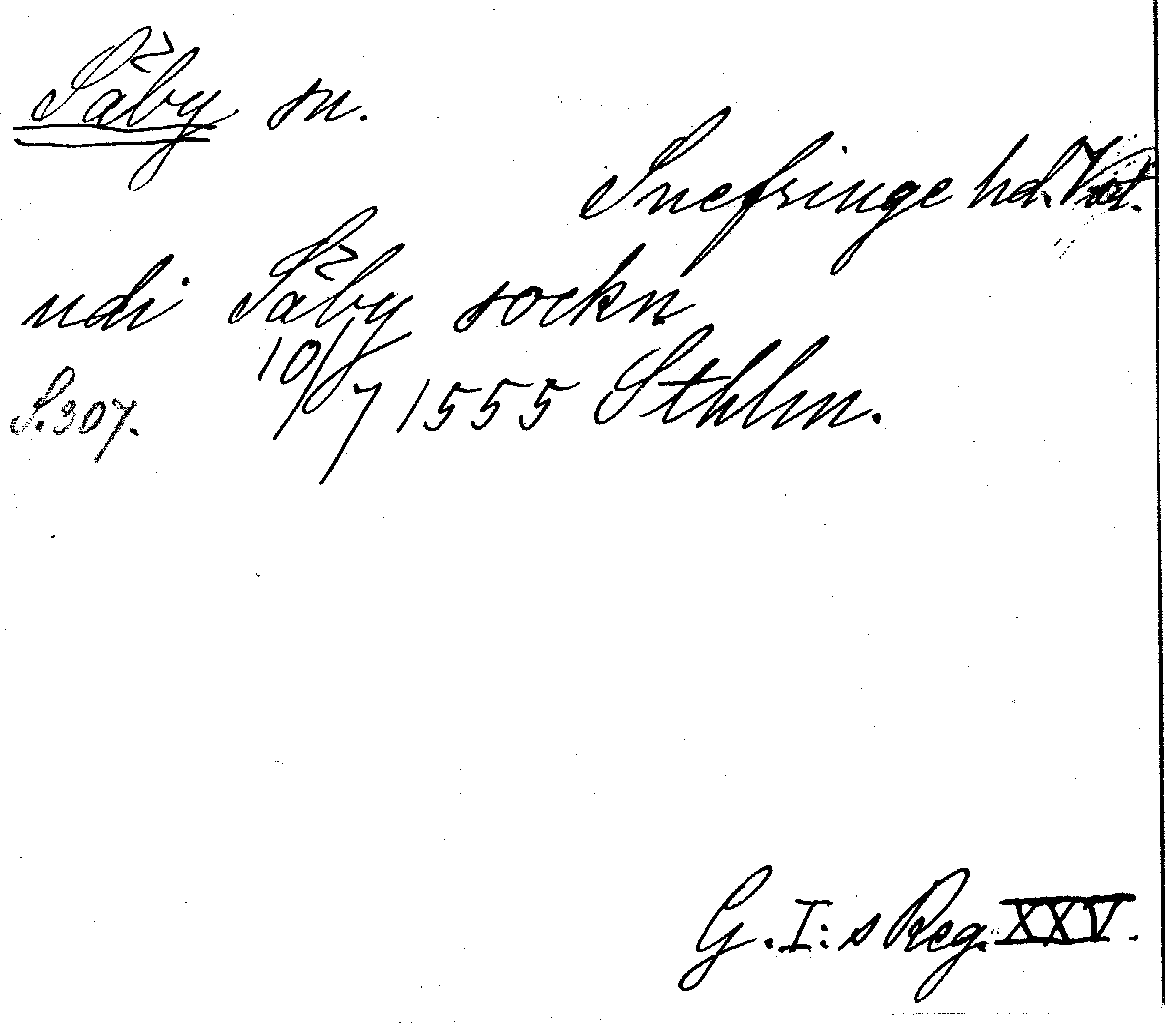 Säby sn.
Snefringe hd.
udi Säby sockn
S. 307. 10/7 1555 Sthlm.
G. I:s Reg. XXV.